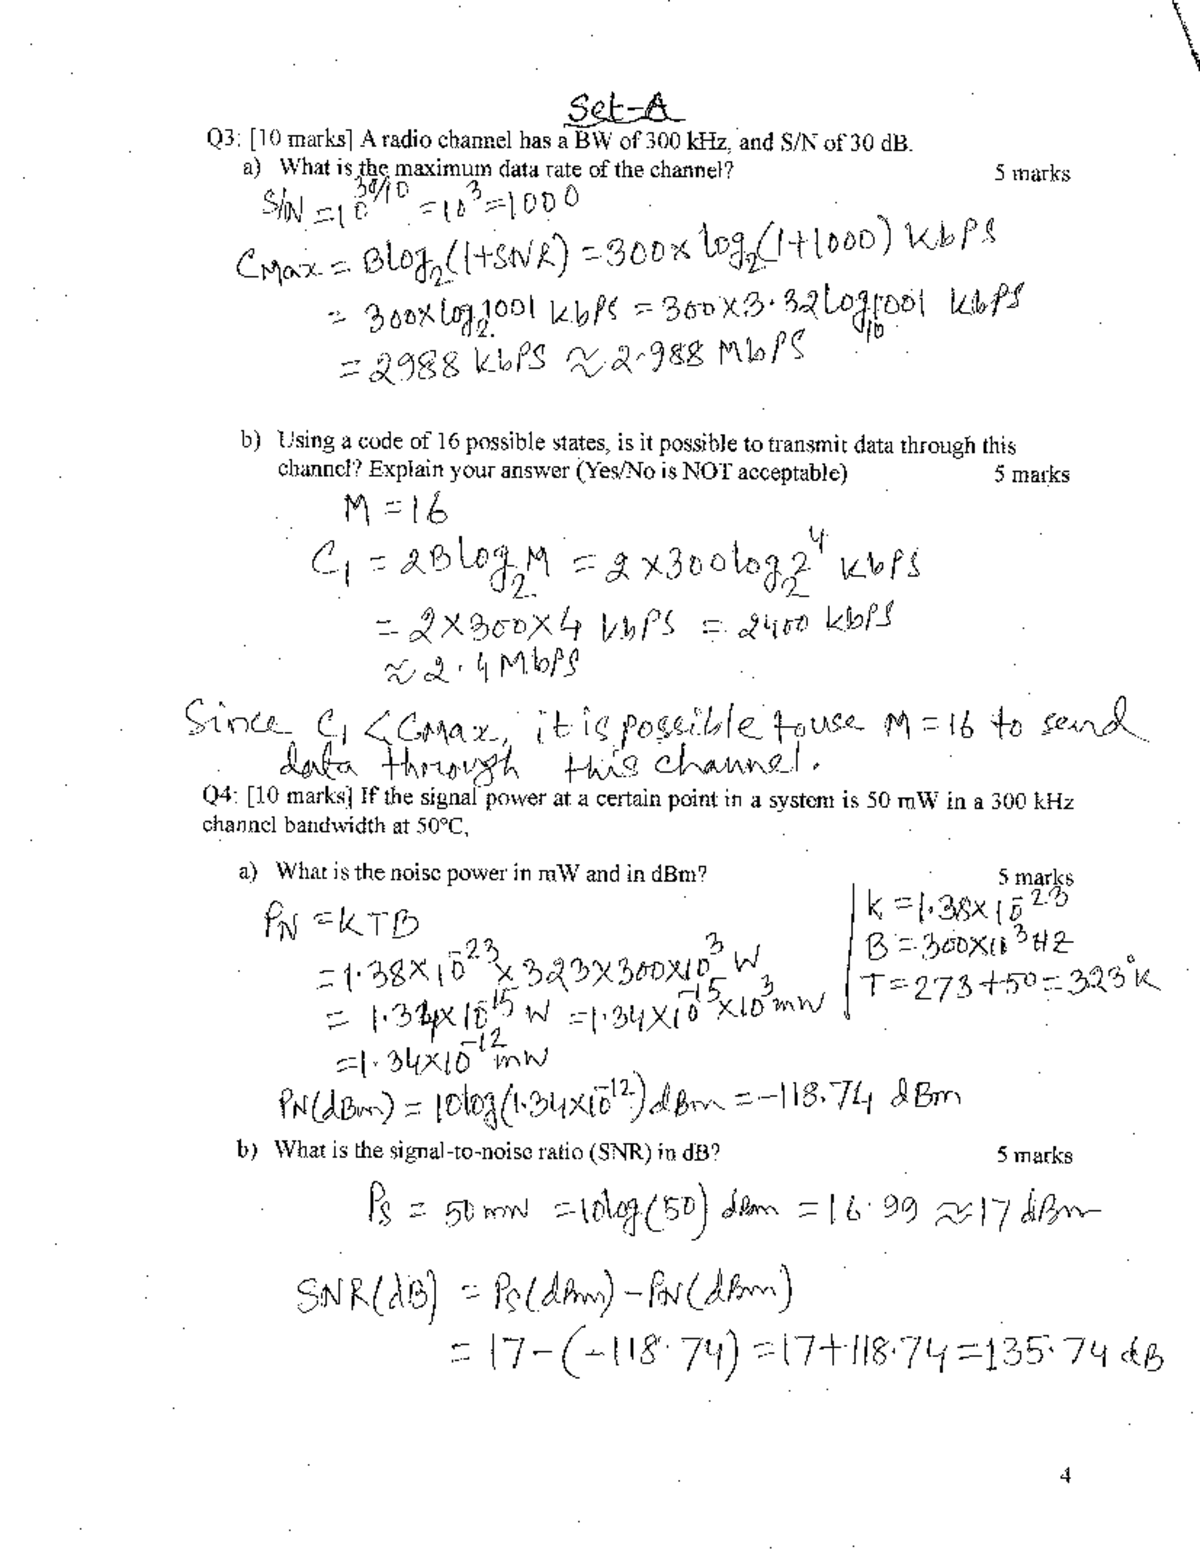 Set-A
Q3: [10 marks] A radio channel has a BW of 300 kHz, and S/N of 30 dB.
a) What is the maximum data rate of the channel? 5 marks
S/N = 10^30/10 = 10^3 = 1000
CMax = Blog2(1+SNR) = 300x log2(1+1000) kbPS
= 300xlog2 1001 kbPS = 300x3.32log10 1001 kbPS
= 2988 kbPS ≈ 2.988 MbPS
b) Using a code of 16 possible states, is it possible to transmit data through this
channel? Explain your answer (Yes/No is NOT acceptable) 5 marks
M = 16
C1 = 2Blog2M = 2x300log2 2^4 kbPS
= 2x300x4 kbPS = 2400 kbPS
≈ 2.4 MbPS
Since C1 < CMax, it is possible to use M=16 to send
data through this channel.
Q4: [10 marks] If the signal power at a certain point in a system is 50 mW in a 300 kHz
channel bandwidth at 50°C,
a) What is the noise power in mW and in dBm? 5 marks
PN = KTB
K = 1.38x10^-23
B = 300x10^3 HZ
= 1.38x10^-23 x323x300x10^3 W
T = 273+50 = 323°K
= 1.34x10^-15 W = 1.34x10^-15x10^3 mW
= 1.34x10^-12 mW
PN(dBm) = 10log(1.34x10^-12) dBm = -118.74 dBm
b) What is the signal-to-noise ratio (SNR) in dB? 5 marks
PS = 50 mW = 10log(50) dBm = 16.99 ≈ 17 dBm
SNR(dB) = PS(dBm) - PN(dBm)
= 17-(-118.74) = 17+118.74 = 135.74 dB
4